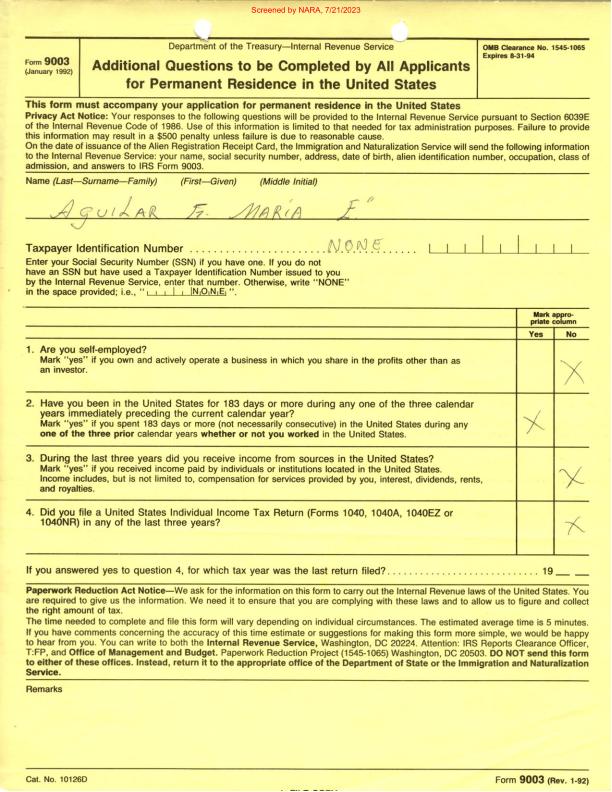 Screened by NARA, 7/21/2023
Form 9003
(January 1992)
Department of the Treasury—Internal Revenue Service
Additional Questions to be Completed by All Applicants
for Permanent Residence in the United States
OMB Clearance No. 1545-1065
Expires 8-31-94
This form must accompany your application for permanent residence in the United States
Privacy Act Notice: Your responses to the following questions will be provided to the Internal Revenue Service pursuant to Section 6039E
of the Internal Revenue Code of 1986. Use of this information is limited to that needed for tax administration purposes. Failure to provide
this information may result in a $500 penalty unless failure is due to reasonable cause.
On the date of issuance of the Alien Registration Receipt Card, the Immigration and Naturalization Service will send the following information
to the Internal Revenue Service: your name, social security number, address, date of birth, alien identification number, occupation, class of
admission, and answers to IRS Form 9003.
Name (Last—Surname—Family) (First—Given) (Middle Initial)
AGUILAR F. MARÍA E"
Taxpayer Identification Number . . . . . . . . . . . . . . . . . . . . . . . . NONE . . . . . .
Enter your Social Security Number (SSN) if you have one. If you do not
have an SSN but have used a Taxpayer Identification Number issued to you
by the Internal Revenue Service, enter that number. Otherwise, write "NONE"
in the space provided; i.e., " | | | |N|O|N|E| ".
Mark appro-
priate column
Yes No
1. Are you self-employed?
Mark "yes" if you own and actively operate a business in which you share in the profits other than as
an investor.
X
2. Have you been in the United States for 183 days or more during any one of the three calendar
years immediately preceding the current calendar year?
Mark "yes" if you spent 183 days or more (not necessarily consecutive) in the United States during any
one of the three prior calendar years whether or not you worked in the United States.
X
3. During the last three years did you receive income from sources in the United States?
Mark "yes" if you received income paid by individuals or institutions located in the United States.
Income includes, but is not limited to, compensation for services provided by you, interest, dividends, rents,
and royalties.
X
4. Did you file a United States Individual Income Tax Return (Forms 1040, 1040A, 1040EZ or
1040NR) in any of the last three years?
X
If you answered yes to question 4, for which tax year was the last return filed? . . . . . . . . . . . . . . . . . . . . . . . . . . . 19 __ __
Paperwork Reduction Act Notice—We ask for the information on this form to carry out the Internal Revenue laws of the United States. You
are required to give us the information. We need it to ensure that you are complying with these laws and to allow us to figure and collect
the right amount of tax.
The time needed to complete and file this form will vary depending on individual circumstances. The estimated average time is 5 minutes.
If you have comments concerning the accuracy of this time estimate or suggestions for making this form more simple, we would be happy
to hear from you. You can write to both the Internal Revenue Service, Washington, DC 20224. Attention: IRS Reports Clearance Officer,
T:FP, and Office of Management and Budget. Paperwork Reduction Project (1545-1065) Washington, DC 20503. DO NOT send this form
to either of these offices. Instead, return it to the appropriate office of the Department of State or the Immigration and Naturalization
Service.
Remarks
Cat. No. 10126D
Form 9003 (Rev. 1-92)